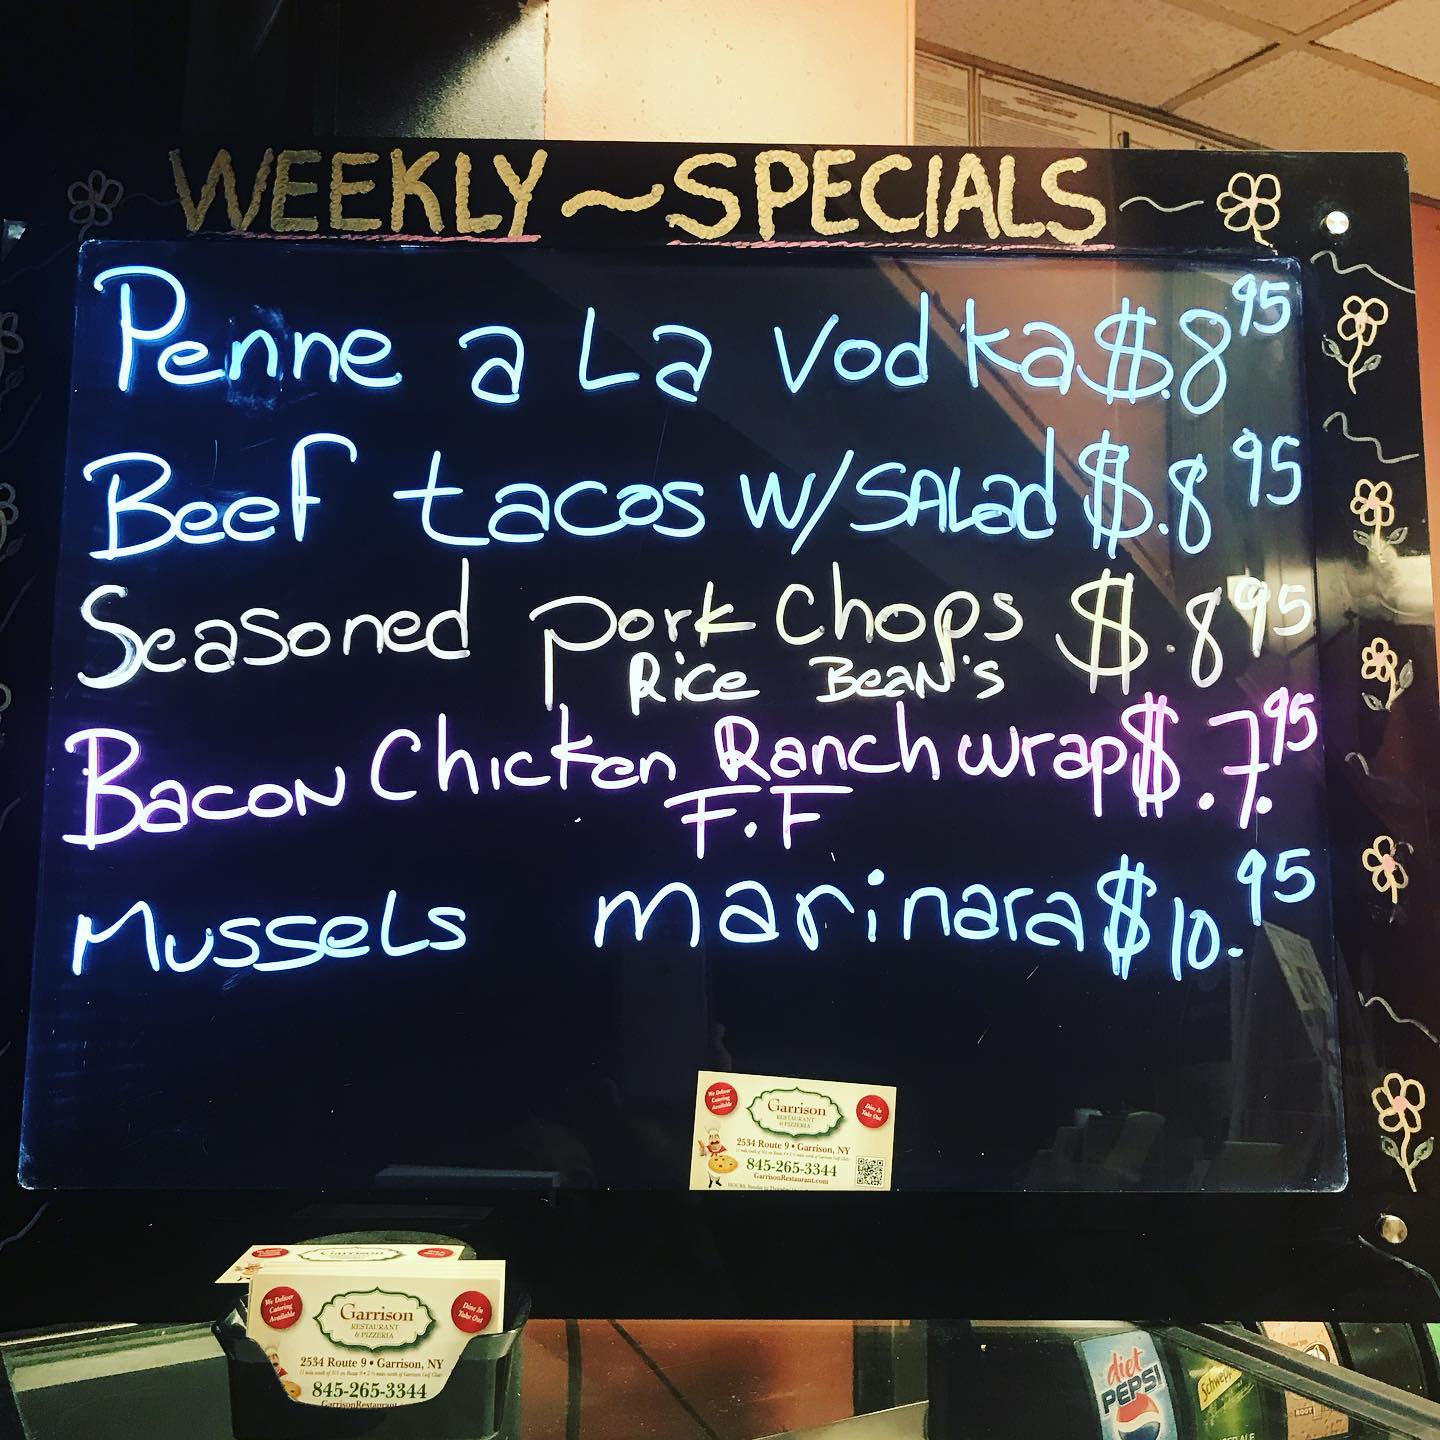 WEEKLY ~ SPECIALS ~
Penne a La Vodka $.8 95
Beef tacos w/SALad $.8 95
Seasoned pork Chops $.8 95
Rice BeaN's
BacoN Chicken Ranch wrap $.7. 95
F.F
MusseLs marinara $10. 95
We Deliver
Catering
Available
Garrison
RESTAURANT
& PIZZERIA
Dine In
Take Out
2534 Route 9 • Garrison, NY
845-265-3344
GarrisonRestaurant.com
Garrison
We Deliver
Catering
Available
Garrison
RESTAURANT
& PIZZERIA
Dine In
Take Out
2534 Route 9 • Garrison, NY
845-265-3344
GarrisonRestaurant
diet
PEPSI
Schwepp
ROOT